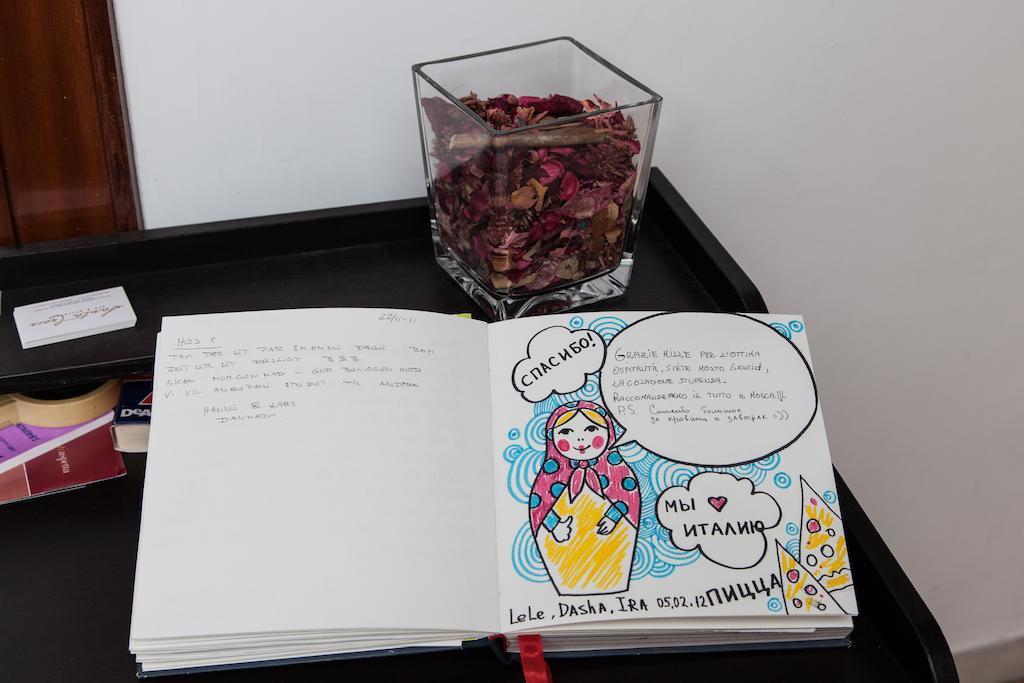 22/11-11
HEJ!
TAK FOR ET PAR SKØNNE DAGE I ROM
DET ER ET DEJLIGT B&B.
SKØN MORGENMAD - GOD BELIGGENHED
VI VIL ANBEFALE STEDET TIL ANDRE
HANNE & LARS
DANMARK
СПАСИБО!
GRAZIE MILLE PER L'OTTIMA
OSPITALITÀ, SIETE MOLTO GENTILI,
LA COLAZIONE STUPENDA.
RACCOMANDEREMO IL TUTTO A MOSCA!!!
P.S. Спасибо большое
за кровать и завтрак =))
МЫ ♥
ИТАЛИЮ
ПИЦЦА
LeLe, DASHA, IRA 05.02.12